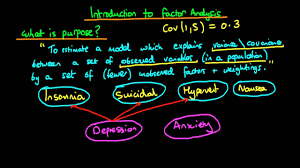 Introduction to Factor Analysis
What is purpose? Cov(I,S) = 0.3
"To estimate a model which explains variance/covariance
between a set of observed variables (in a population)
by a set of (fewer) unobserved factors + weightings."
Insomnia Suicidal Hypervent Nausea
Depression Anxiety